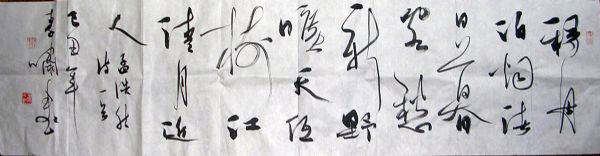 移舟
泊烟渚
日暮
客愁
新野
旷天低
树江
清月近
人
孟浩然
诗一首